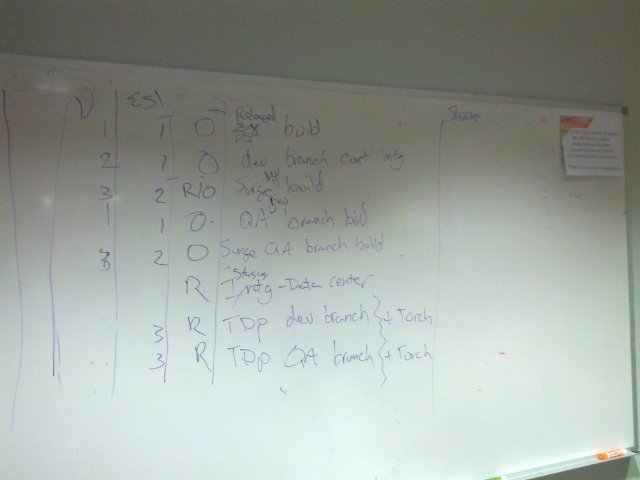 V EST
Released
1 1 O build
2 1 O dev branch cont intg
3 2 R/O Surge build
1 1 O QA branch build
3 2 O Surge QA branch build
Staging
R Intg - Data center
3 R TDP dev branch } + Torch
3 R TDP QA branch } + Torch